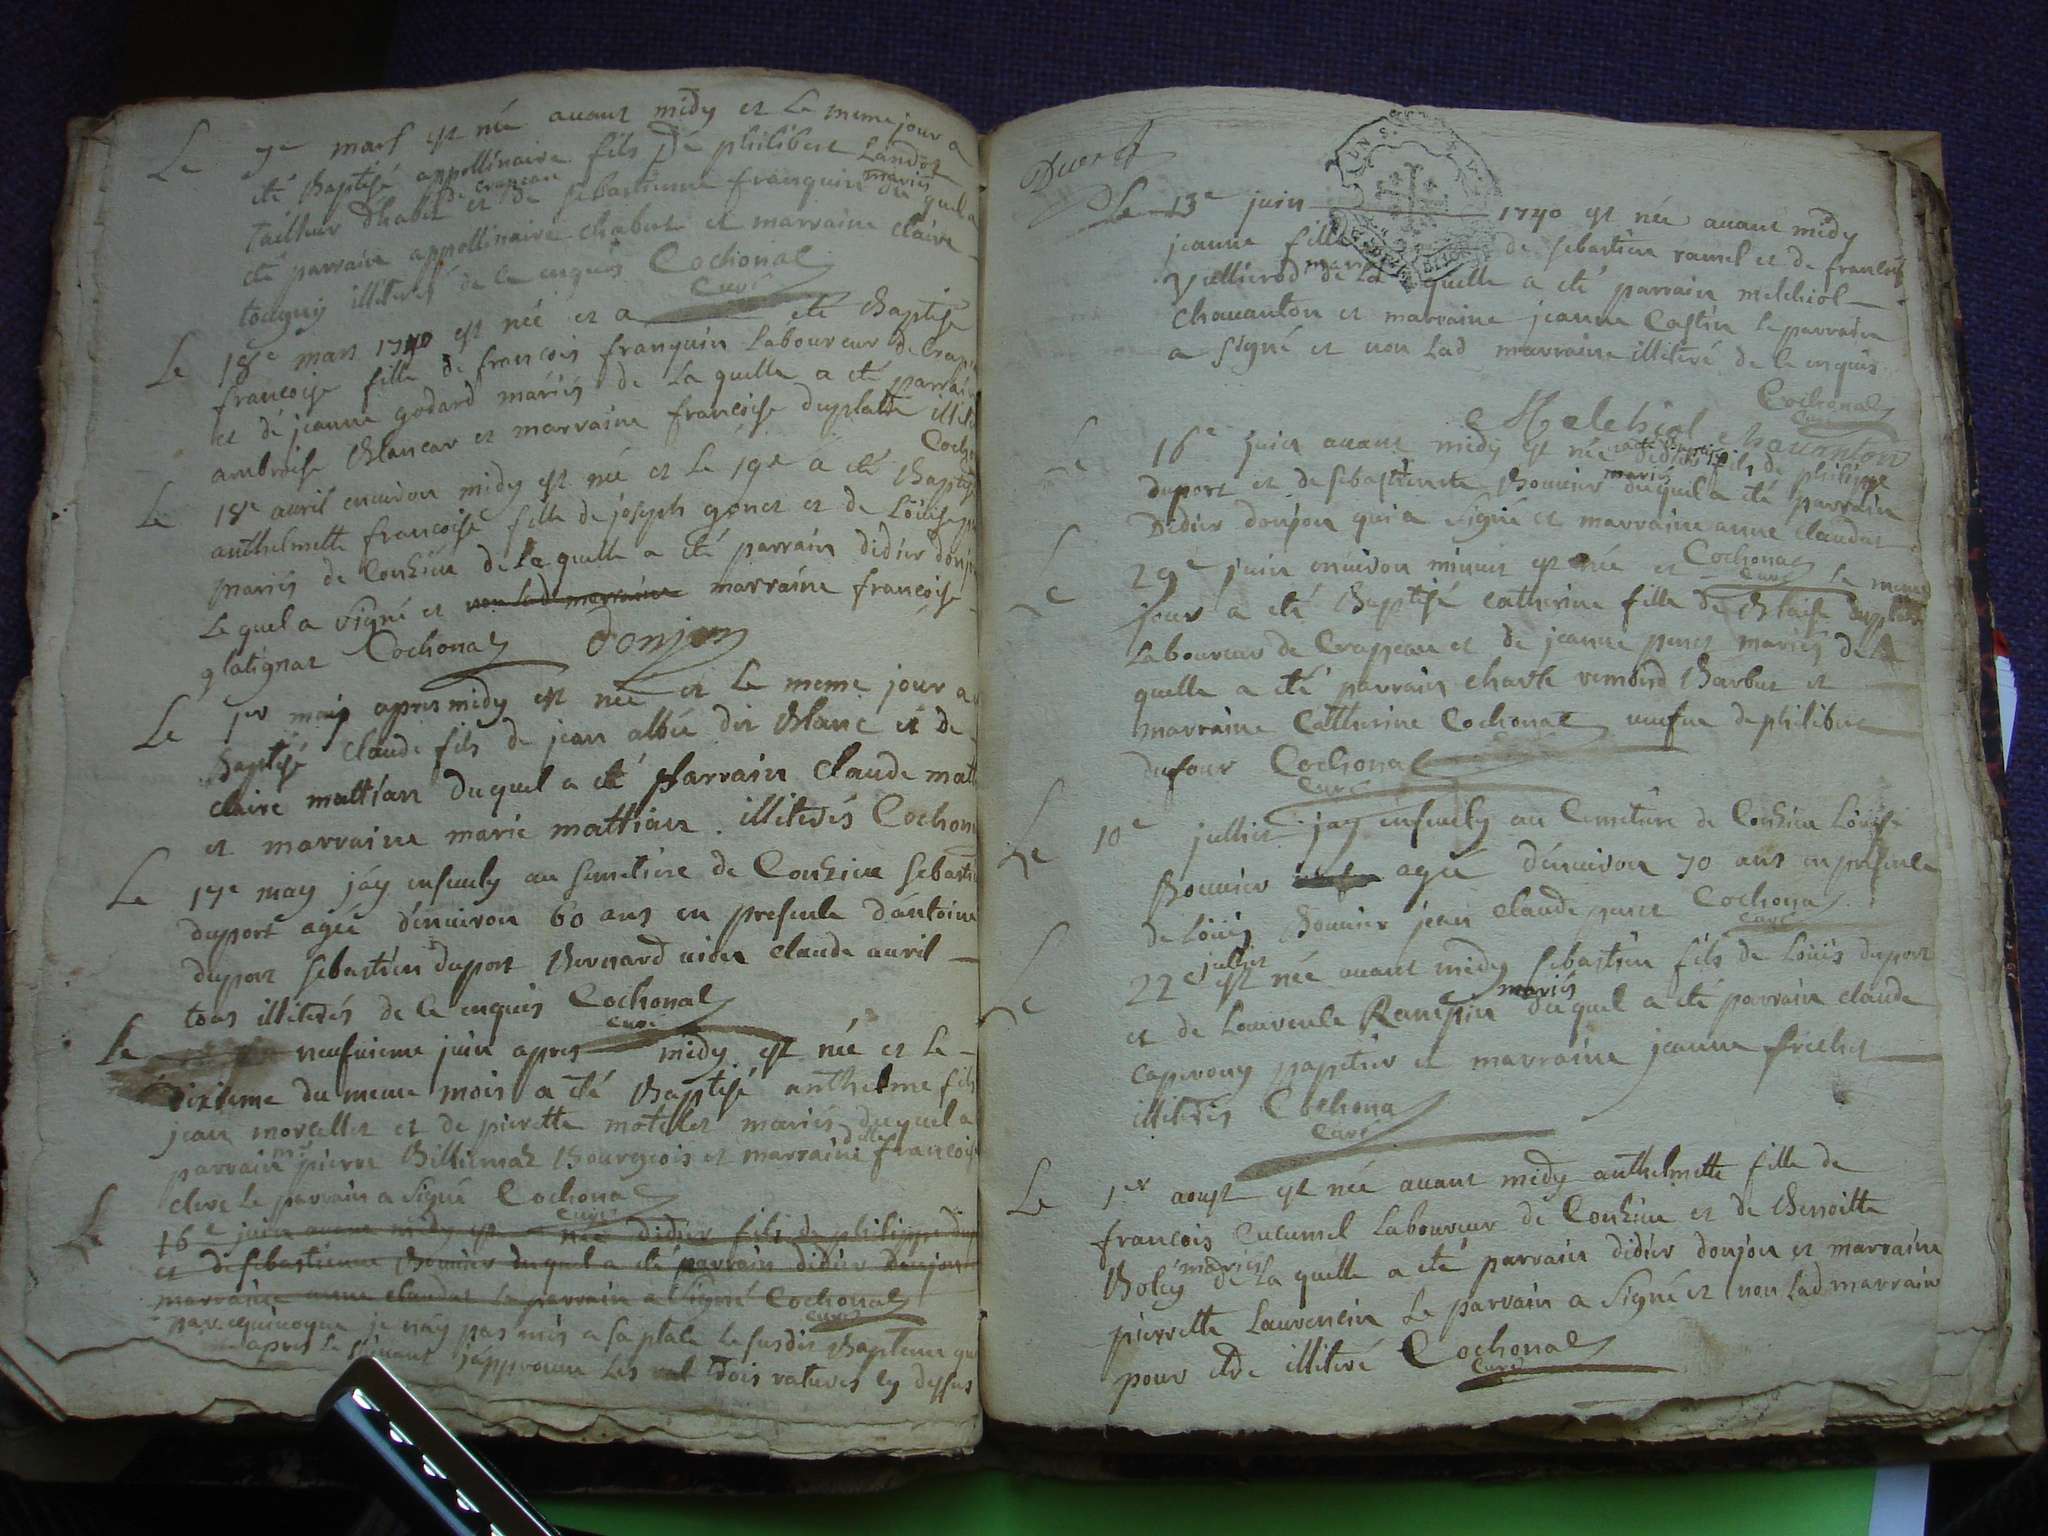 Le 7e mars est née avant midy et Le meme jour a
été Baptisé appollinaire fils De philibert Landos
tailleur d'habit de crapeau et de sebastienne franquin mariés du quel a
été parrain appollinaire chabert et marraine claire
tocquy illiterés de ce enquis Cochonat
Curé
Le 18e mars 1740 est née et a été Baptisé
francoise fille de francois franquin Laboureur de Crap
et dé jeanne godard mariés de La quelle a été parrain
ambroise Blancar et marraine francoise duplatre illite
Cocho
Le 18e avril environ midy est née et Le 19e a été Baptis
anthelmette francoise fille de joseph gonet et de Loüise
mariés de Conzieu de la quelle a été parrain didier donj
Le quel a signé et non lad marraine marraine francoise
glatignat Cochonat Donjon
Le 1er may apres midy est née et Le meme jour a
Baptisé claude fils de jean albée dit Blanc et de
claire mattian duquel a eté parrain claude matt
et marraine marie mattian illiterés Cochon
Le 17e may j'ay enseuely au simetiere de Conzieu sebasti
duport agée d'enuiron 60 ans en presence d'antoine
duport sebastien duport Bernard claude auril
tous illiterés de ce enquis Cochonat
Curé
Le neufuieme juin apres midy est née et Le
dixieme du meme mois a été Baptisé anthelme fils
jean morcellet et de pierette mottelet mariés duquel a
parrain mr pierre Billiemaz Bourgeois et marraine dlle francoise
clerc le parrain a signé Cochonat
Curé
16e juin avant midy est née didier fils de philippe dup
et de sebastienne Bonnier duquel a été parrain didier donjon
marraine anne claudat Le parrain a signé Cochonat
Curé
par equiuoque je n'ay pas mis a sa place Le susdit Bapteme qu
apres le suiuant j'approuue Les trois ratures cy dessus
Duert
Le 13e juin 1740 est née auant midy
jeanne fille de sebastien ramel et de francois
Vullierod mariés de La quelle a été parrain melchiol
chauanton et marraine jeanne Castin Le parrain
a signé et non Lad marraine illiteré de ce enquis
Cochonat
Curé
Melchiol chavanton
Le 16e juin auant midy est née didier fils de philippe
duport et de sebastienne Bonnier mariés duquel a été parrain
Didier donjon qui a signé et marraine anne claudat
Cochonat
Curé
Le 29e juin enuiron minuit est née et Le meme
jour a été Baptisé catherine fille de Blaise duplatre
Laboureur de Crapeau et de jeanne perret mariés de La
quelle a été parrain charle remond Barbut et
marraine Catherine Cochonat ueufue de philibert
dufour Cochonat
Curé
Le 10e jullier j'ay enseuely au Cemetiere de Conzieu Loüise
Bonnier agée d'enuiron 70 ans en presence
de Loüis Bonnier jean claude perret Cochonat
Curé
Le 22e jullet est née auant midy sebastien fils de Loüis duport
et de Laurence Rampin mariés du quel a été parrain claude
caperony papetier et marraine jeanne frechet
illiterés Cochonat
Curé
Le 1er aoust est née auant midy anthelmette fille de
francois Cucumel Laboureur de Conzieu et de Benoitte
Boley mariés de La quelle a été parrain didier donjon et marraine
pierrette Laurencin Le parrain a signé et non Lad marrain
pour etre illiteré Cochonat
Curé